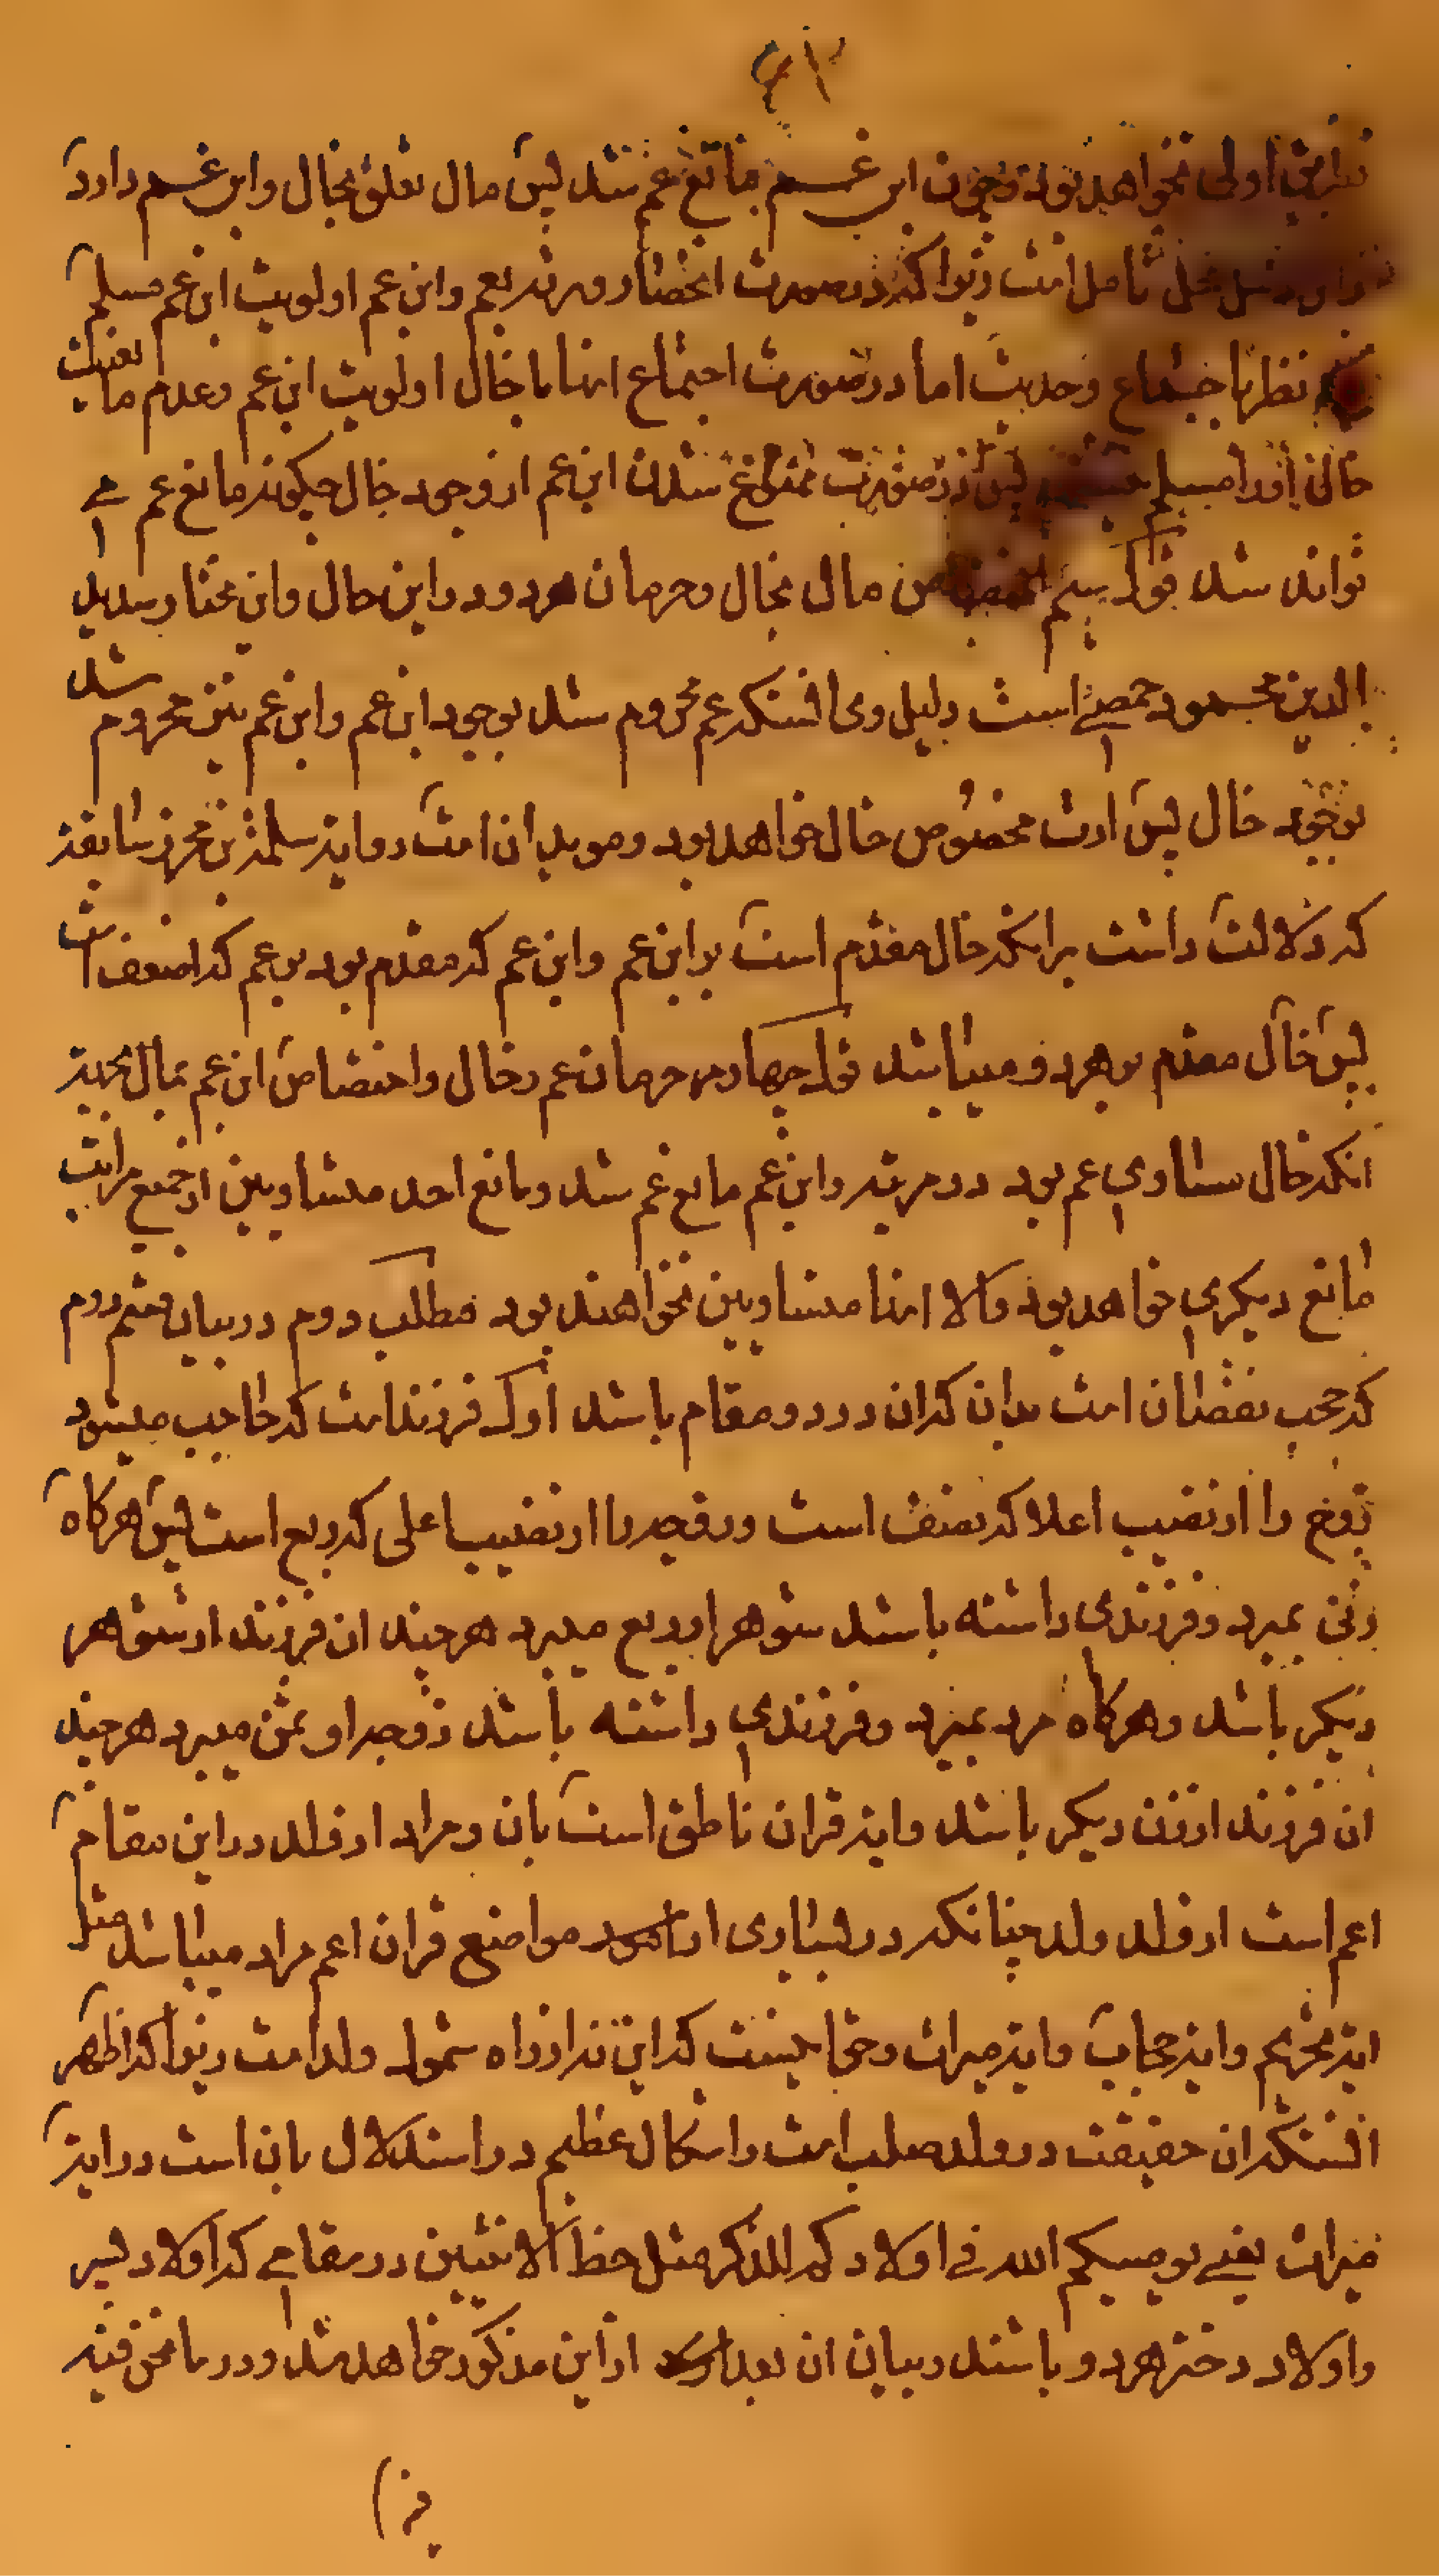 اولی نخواهد بود و چون ابن عم مانع عم شد پس مال تعلق بخال و ابن عم دارد
محل تامل است زیرا که در صورت انحصار ورثه بعم و ابن عم اولویت ابن عم مسلم
نظر باجماع و حدیث اما در صورت اجتماع اینها با خال اولویت ابن عم و عدم مانعیت
خال او را مسلم پس در صورت ممنوع شدن ابن عم از وجود خال چگونه مانع عم می
تواند شد قول سیم اختصاص مال بخال و حرمان هردو در این حال و این مختار سدید
الدین محمود حمصی است دلیل وی آنستکه عم محروم شد بوجود ابن عم و ابن عم نیز محروم شد
بوجود خال پس ارث مخصوص خال خواهد بود و موید آن است روایة سلمة بن محرز سابقة
که دلالت داشت بر آنکه خال مقدم است بر ابن عم و ابن عم که مقدم بود بر عم که اضعف است
پس خال مقدم بر هردو میباشد قول چهارم حرمان عم و خال و اختصاص ابن عم بمال بجهة
آنکه خال مساوی عم بود در مرتبه و ابن عم مانع عم شد و مانع احد متساویین از جمیع مراتب
مانع دیگری خواهد بود و الا اینها متساویین نخواهند بود مطلب دوم در بیان قسم دوم
که حجب نقصان است بدان که آن در دو مقام باشد اول فرزند است که حاجب میشود
زوج را از نصیب اعلا که نصف است و زوجه را از نصیب اعلی که ربع است پس هرگاه
زنی بمیرد و فرزندی داشته باشد شوهر او ربع میبرد هرچند آن فرزند از شوهر
دیگر باشد و هرگاه مرد بمیرد و فرزندی داشته باشد زوجه او ثمن میبرد هرچند
آن فرزند از زن دیگر باشد و آیة قرآن ناطق است بآن و مراد از ولد در این مقام
اعم است از ولد ولد چنانکه در بسیاری از مواضع قرآن اعم مراد میباشد مثل
آیة تحریم و آیة حجاب و آیة میراث و حق اینست که این نه از راه شمول ولد است زیرا که اظهر
آنستکه آن حقیقت در ولد صلب است و اشکال عظیم در استدلال بآن است در آیة
میراث یعنی یوصیکم الله فی اولادکم للذکر مثل حظ الانثیین در مقامی که اولاد پسر
و اولاد دختر هردو باشند و بیان آن بعد از این مذکور خواهد شد و در ما نحن فیه